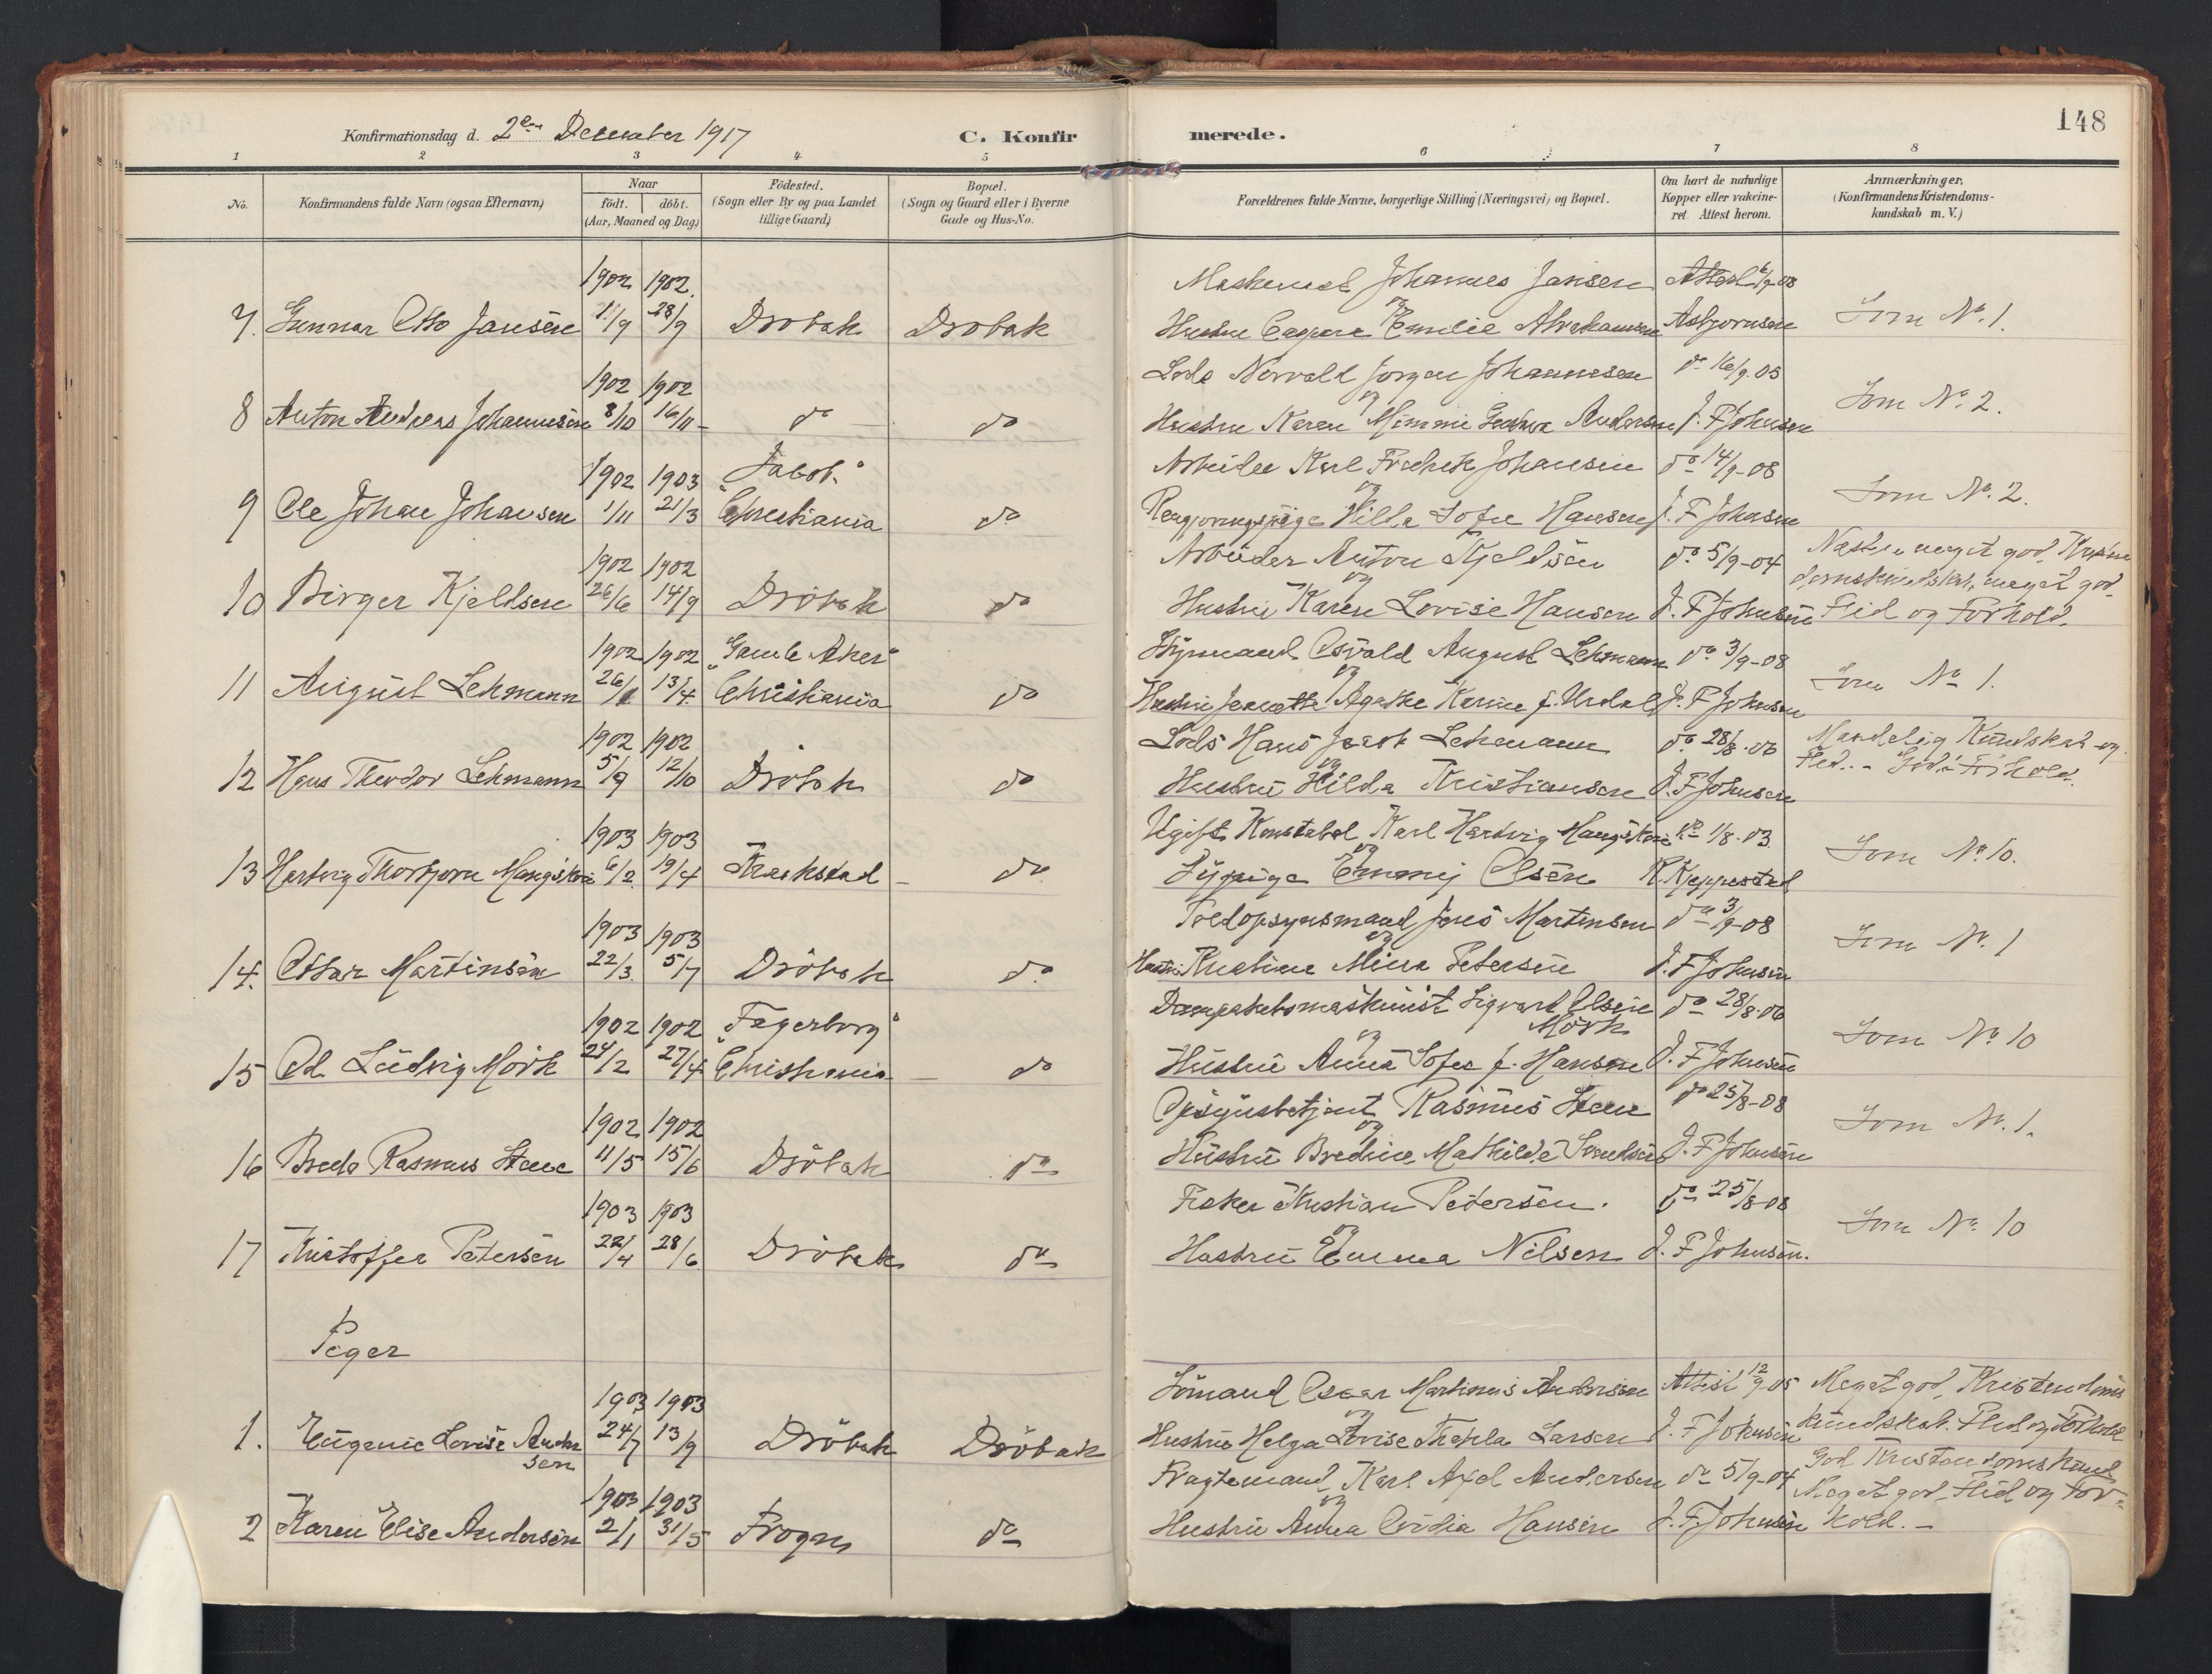 148
Konfirmationsdag d. 2den December 1917
C. Konfirmerede.
1 2 3 4 5 6 7 8
No.
Konfirmandens fulde Navn (ogsaa Efternavn)
Naar
födt. döbt.
(Aar, Maaned og Dag)
Födested.
(Sogn eller By og paa Landet
tillige Gaard)
Bopæl.
(Sogn og Gaard eller i Byerne
Gade og Hus-No.
Forældrenes fulde Navne, borgerlige Stilling (Næringsvei) og Bopæl.
Om havt de naturlige
Kopper eller vakcine-
ret. Attest herom.
Anmærkninger.
(Konfirmandens Kristendoms-
kundskab m. V.)
1902 1902. Johannes Jansen Attest 6/9-08
7. Gunnar Otto Jansen 11/9 28/9 Drobak Drobak og Hustru Emilie Abrahamsen Asbjornsen Som No. 1.
1902 1902 Lods Norvald Jorgen Johannesen do 16/9.05
8 Anton Andreas Johannesen 8/10 16/11 do do og Hustru Karen Mimmi Andersen J. F Johnsen Som No. 2.
1902 1903 "Jakob" Arbeider Karl Fredrik Johansen do 14/9-08
9 Ole Johan Johansen 1/11 21/3 Christiania do og Rengjoringspige Hilda Sofie Hansen J. F Johnsen Som No. 2.
1902 1902 Arbeider Anton Kjeldsen do 5/9-04 Næsten meget god Kristen
10 Birger Kjeldsen 26/6 14/9 Dröbak do og Hustru Karen Lovise Hansen J. F Johnsen domskundskab, meget god Flid og Forhold.
1902 1902 "Gamle Aker" Styrmand Osvald August Lehmann do 3/9-08
11 August Lehmann 26/1 13/4 Christiania do og Hustru Jeanette Agathe Karine f. Urdal J. F Johnsen Som No 1.
1902 1902 Lods Hans Jacob Lehmann do 28/8.06 Maadelig Kundskab og
12 Hans Theodor Lehmann 5/9 12/10 Dröbak do og Hustru Hilda Kristiansen J. F Johnsen Flid. - God Forhold.
1903 1903 Ugift Konstabel Karl Hartvig do 1/8.03.
13 Hartvig Thorbjorn 6/2 19/4 Kraakstad do og Sypige Emmy Olsen K. Kjeppestad Som No. 10.
1903 1903 Toldopsynsmand Jens Martinsen do 3/9-08
14. Ottar Martinsen 22/3. 5/7 Dröbak do og Hustru Kristine Mina Petersen J. F Johnsen Som No. 1
1902 1902 "Fagerborg" Dampskibsmaskinist Sigvart Olsen Mörk do 28/8.06
15 Od. Ludvig Mörk 24/2 27/4 Christiania do og Hustru Anna Sofie f. Hansen J. F Johnsen Som No 10
1902 1902 Opsynsbetjent Rasmus Steen do 25/8-08
16 Bredo Rasmus Steen 11/5 15/6 Dröbak do og Hustru Bredine Mathilde J. F Johnsen Som No. 1.
1903 1903 Fisker Kristian Petersen. do 25/8-08
17 Kristoffer Petersen 22/4 28/6 Dröbak do og Hustru Emma Nilsen J. F Johnsen. Som No. 10
Piger
1903 1903 Sömand Oscar Martinius Andersen Attest 12/9-05 Meget god Kristendoms
1. Eugenie Lovise Andersen 24/7 13/9 Dröbak Dröbak og Hustru Helga Lovise Thekla Larsen J. F Johnsen kundskab. Flid og Forhold
1903 1903 Fragtemand Karl Axel Andersen do 5/9-04 God Kristendomskund Meget god Flid og For-
2 Karen Elise Andersen 2/1 31/5 Frogn do og Hustru Anna Hansen J. F. Johnsen hold. -